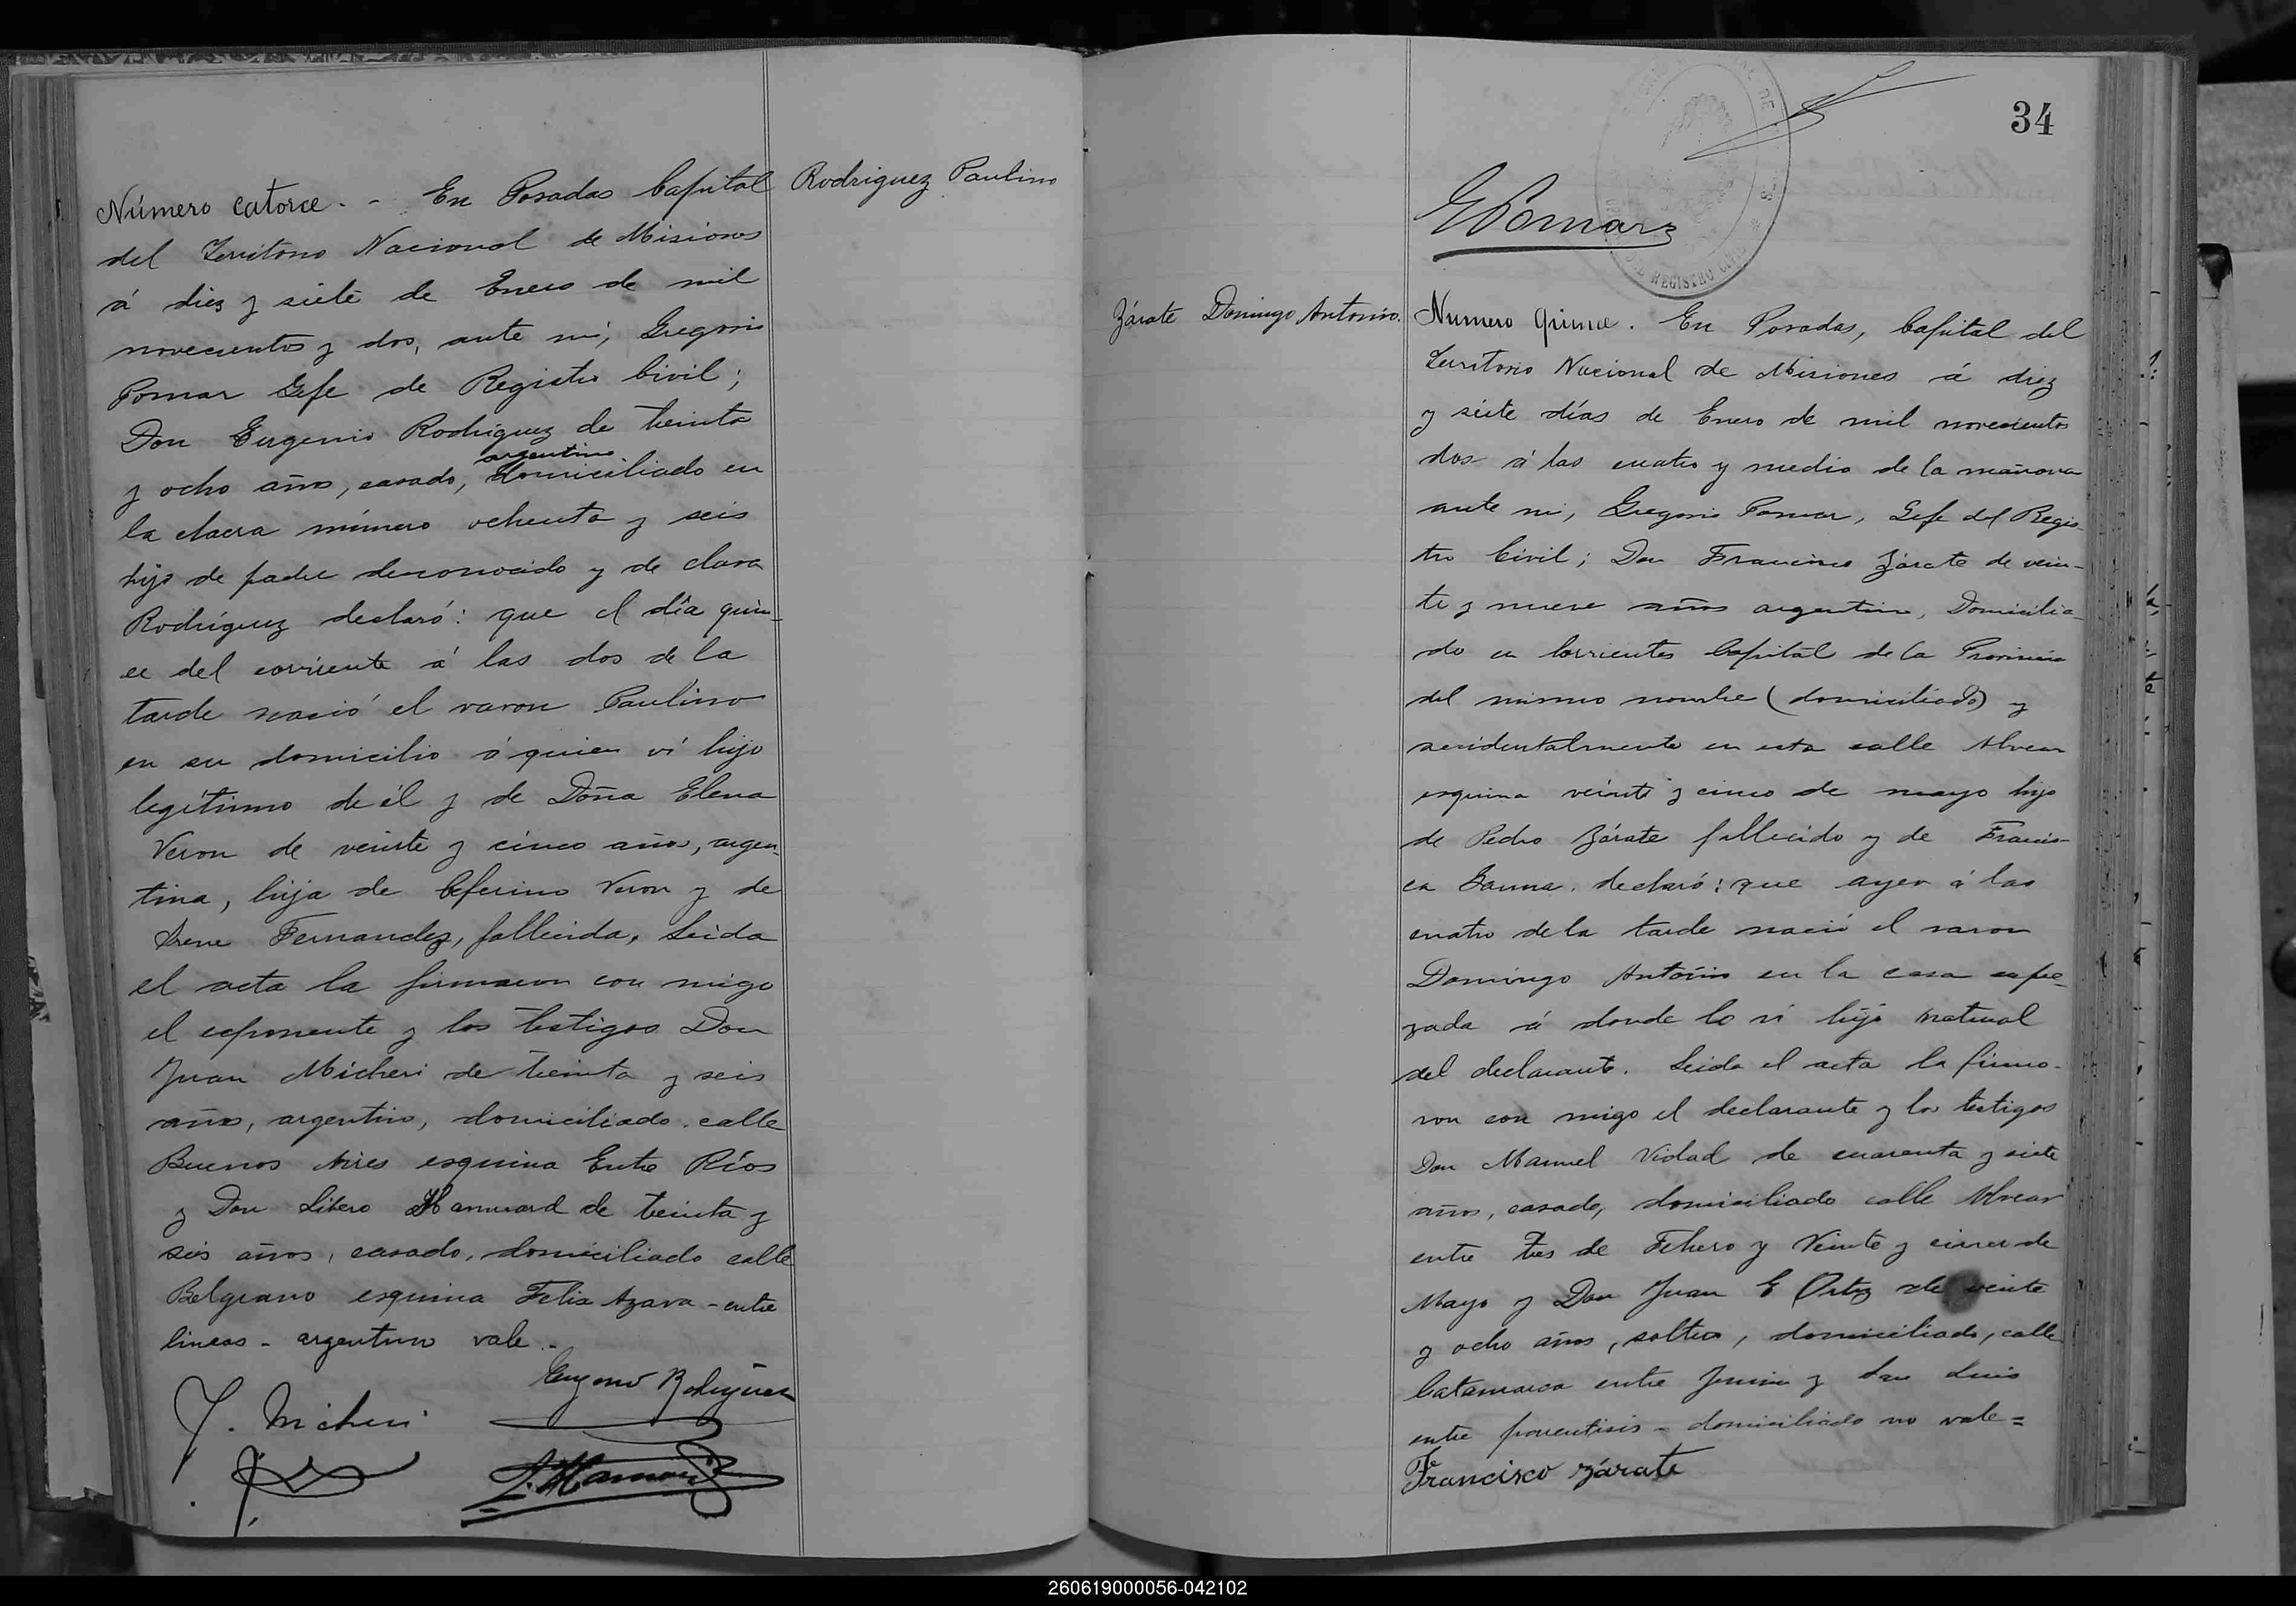 Número catorce. - En Posadas Capital
del Territorio Nacional de Misiones
á diez y siete de Enero de mil
novecientos y dos, ante mi, Gregorio
Pomar Gefe de Registro Civil;
Don Eugenio Rodriguez de treinta
argentino
y ocho años, casado, domiciliado en
la chacra número ochenta y seis
hijo de padre desconocido y de clara
Rodriguez declaró: que el día quin-
ce del corriente á las dos de la
tarde nació el varon Paulino
en su domicilio á quien ví hijo
legítimo de él y de Doña Elena
Veron de veinte y cinco años, argen-
tina, hija de Ceferino Veron y de
Irene Fernandez, fallecida. Leida
el acta la firmaron con migo
el esponente y los testigos Don
Juan Micheri de treinta y seis
años, argentino, domiciliado calle
Buenos Aires esquina Entre Ríos
y Don Libero de treinta y
seis años, casado, domiciliado calle
Belgrano esquina Felix Azara - entre
lineas - argentino vale.-
Eugenio Rodriguez
J. Micheri
Rodriguez Paulino
34
GPomar
REGISTRO CIVIL
Zárate Domingo Antonio.
Numero quince. En Posadas, Capital del
Territorio Nacional de Misiones á diez
y siete días de Enero de mil novecientos
dos á las cuatro y media de la mañana
ante mi, Gregorio Pomar, Gefe del Regis-
tro Civil; Don Francisco Zárate de vein-
te y nueve años argentino, Domicilia-
do en Corrientes Capital de la Provincia
del mismo nombre (domiciliado) y
accidentalmente en esta calle Alvear
esquina veinte y cinco de mayo hijo
de Pedro Zárate fallecido y de Francis-
ca declaró: que ayer á las
cuatro de la tarde nació el varon
Domingo Antonio en la casa espre-
zada á donde lo ví hijo natural
del declarante. Leida el acta la firma-
ron con migo el declarante y los testigos
Don Manuel Vidad de cuarenta y siete
años, casado, domiciliado calle Alvear
entre tres de Febrero y Veinte y cinco de
Mayo y Don Juan E Ortiz de veinte
y ocho años, soltero, domiciliado, calle
Catamarca entre Junin y San Luis
entre parentisis - domiciliado no vale =
Francisco Zárate
260619000056-042102